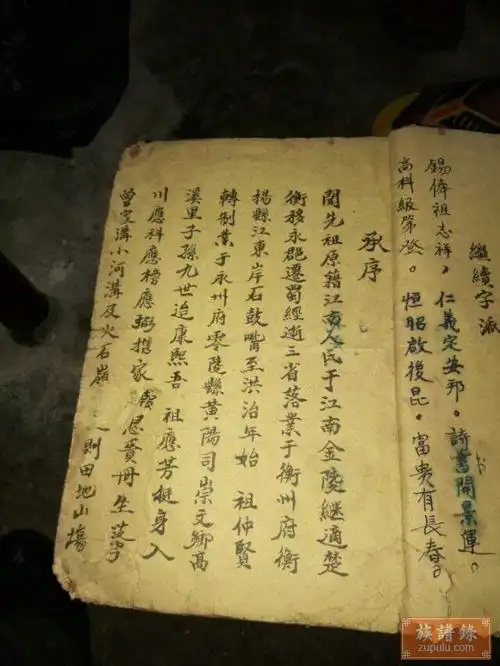 繼續字派
錫俸祖志祥。仁義定安邦。詩書開景運。
高科級第登。恒昭啟後昆。富貴有長春。
承序
閱先祖原籍江南人民于江南金陵繼適楚
衡移永郡遷蜀經逝三省落業于衡州府衡
楊縣江東岸石鼓嘴至洪治年始 祖仲賢
轉制業于永州府零陵縣黃陽司崇文鄉高
溪里子孫九世迨康熙吾 祖應芳挺身入
川應科應榜應弼携家 思賫冊坐
曾家溝小河溝及火石嶺 則田地山塲
族譜錄
zupulu.com